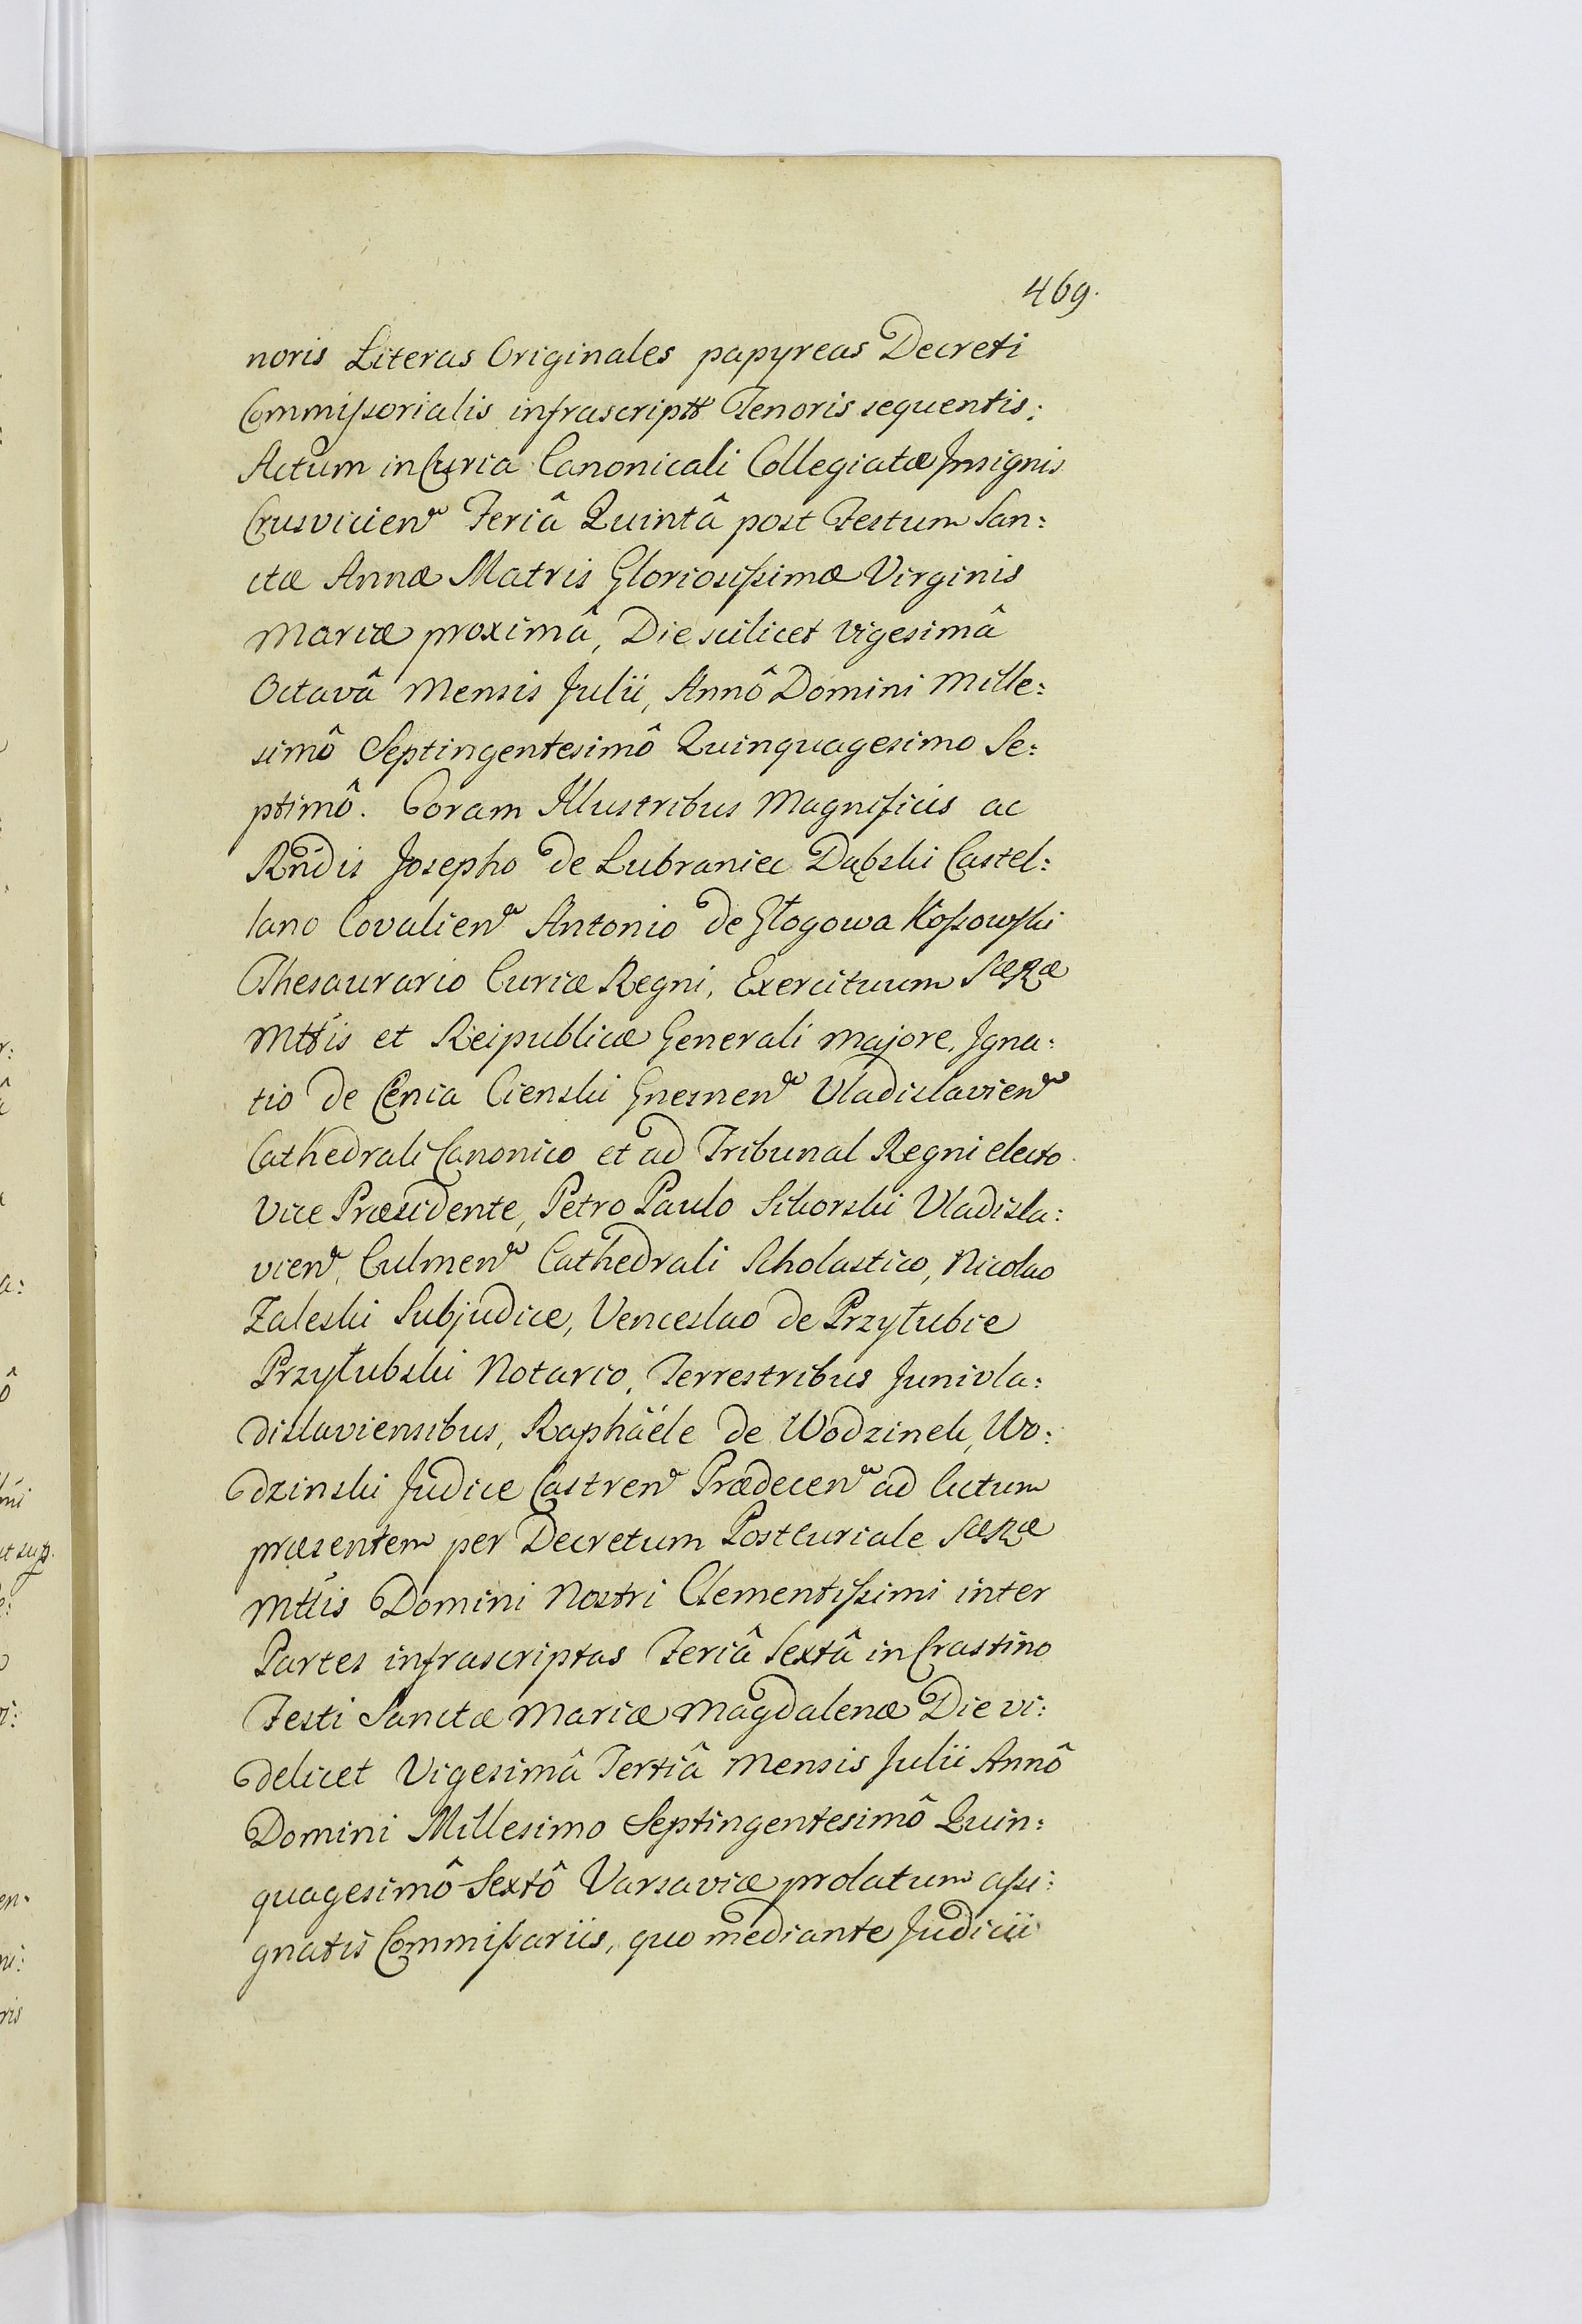 469.
noris Literas Originales papyreas Decreti
Commissorialis infrascriptt Tenoris sequentis:
Actum in Curia Canonicali Collegiatæ Insignis
Crusvicien Feriâ Quintâ post Festum San:
ctæ Annæ Matris Gloriosissimæ Virginis
Mariæ proximâ, Die scilicet Vigesimâ
Octavâ Mensis Julii, Annô Domini Mille:
simô Septingentesimô Quinquagesimo Se:
ptimô. Coram Illustribus Magnificis ac
Rndis Josepho de Lubraniec Dąbski Castel:
lano Covalien Antonio de Głogowa Kossowski
Thesaurario Curiæ Regni, Exercituum SæRæ
Mttis et Reipublicæ Generali Majore, Igna:
tio de Cenia Cienski Gnesnen Vladislavien
Cathedrali Canonico et ad Tribunal Regni electo
Vice Præsidente, Petro Paulo Sikorski Vladisla:
vien, Culmen Cathedrali Scholastico, Nicolao
Zaleski Subjudice, Venceslao de Przyłubie
Przyłubski Notario, Terrestribus Junivla:
dislaviensibus, Raphäéle de Wodzinek, Wo:
dzinski Judice Castren Prædecen ad Actum
præsentem per Decretum Postcuriale SæRæ
Mttis Domini Nostri Clementissimi inter
Partes infrascriptas Feriâ Sextâ in Crastino
Festi Sanctæ Mariæ Magdalenæ Die vi:
delicet Vigesimâ Tertiâ Mensis Julii Annô
Domini Millesimo Septingentesimô Quin:
quagesimô Sextô Varsaviæ prolatum assi:
gnatis Commissariis, quo mediante Judicii